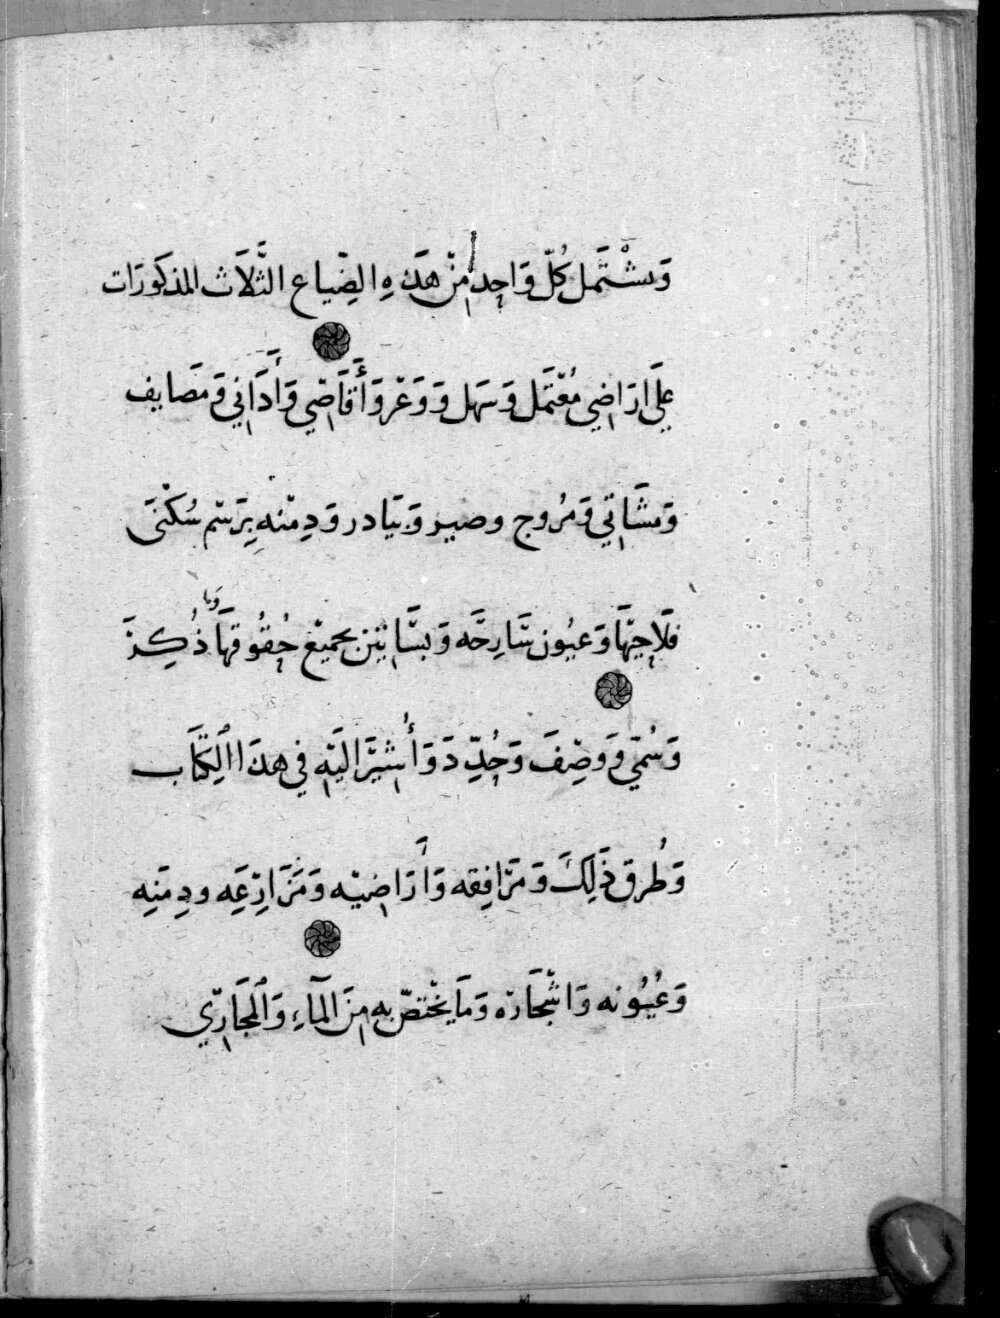 وَيشْتَمل كُلّ وَاحِد مِنْ هَذِهِ الضِّياع الثَّلَاث المذكورَات
عَلَى ارَاضِي مُعْتَمَل وَسَهل وَوَعْر وَأَقَاصِي وَأَدَانِي وَمَصَايف
وَمشَاتِي وَمُرُوج وصير وَبيَادر وَدِمْنه بِرَسْم سُكْنَى
فلَاحِيْهَا وَعيُون سَارِحَه وَبسَاتين بجميْع حُقُوقهَا وَمَا ذُكِرَ
وَسُمّي وَوَصِفَ وَحُدِّدَ وَأُشيْرَ اليْه في هَذَا الكِتَاب
وَطُرق ذَلِكَ وَمَرَافِقه وَأرَاضيْه وَمَزَارِعَه ودِمَنِه
وَعُيُونه وَاشْجَارَه وَمَا يَخْتصّ بِه مِنَ المآءِ وَالمَجَارِي